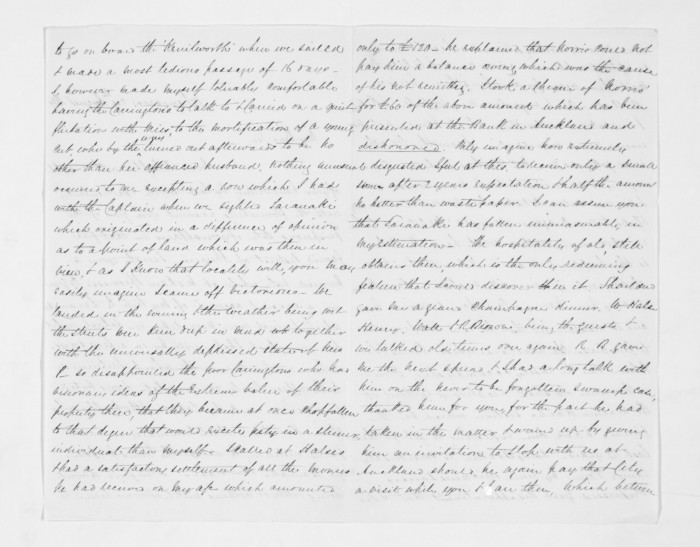 to go on board the 'Kenilworth' when we sailed
& made a most tedious passage of 16 days -
I, however made myself tolerably comfortable
having the Caringtons to talk to & carried on a quiet
flirtation with Miss to the mortification of a young
but who by the turned out afterwards to be no
other than her affianced husband. Nothing unusual
occurred to me excepting a row which I had
with the Captain when we sighted Taranaki
which originated in a difference of opinion
as to a point of land which was then in
view, & as I know that locality well, you may
easily imagine I came off victorious - We
landed in the evening & the weather being wet
the streets were knee deep in mud wh together
with the universally depressed state of New
P. so disappointed the poor Caringtons who had
visionary ideas of the extreme value of their
property there that they became at once chopfallen
to that degree that would excite pity in a sterner
individual than myself. I called at Halses
& had a satisfactory settlement of all the monies
he had received on my a/c which amounted
only to £120 - he explained that Norris could not
pay him a balance owing which was the cause
of his not remitting. I took a cheque of Norris'
for £60 of the above amount which has been
presented at the Bank in Auckland and
dishonored. Only imagine how extremely
disgusted I feel at this, to receive only a small
sum after 2 years expectation & half the amount
no better than waste paper. I can assure you
that Taranaki has fallen immeasurably in
my estimation - The hospitality of old, still
obtains there, which is the only redeeming
feature that I could discover in it.
gave me a grand Champagne dinner. W Halse
Henry, Watt & R being the guests &
we talked old times once again R B gave
me the best spread & I had a long talk with
him on the never to be forgotten swamp case,
thanked him for you, for the part he had
taken in the matter & wound up by giving
him an invitation to stop with us at
Auckland should he again pay that City
a visit while you & I are there, Which between